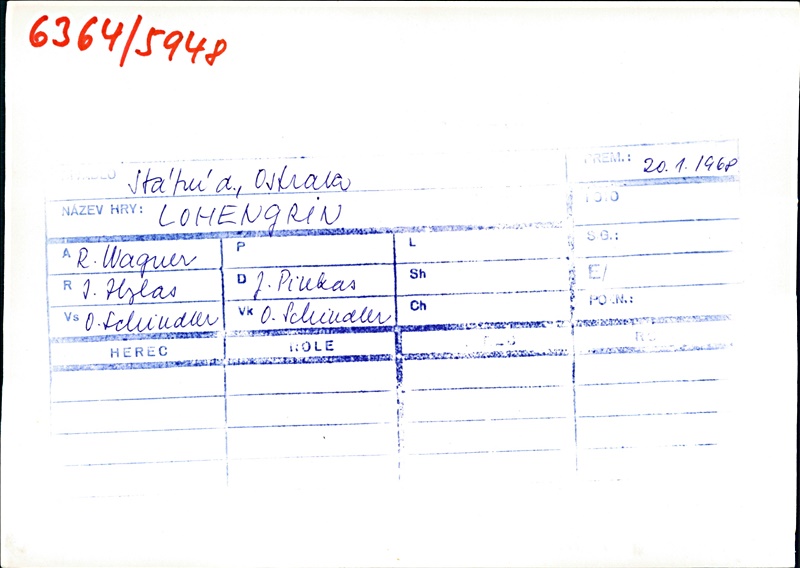 6364/5948
DIVADLO Státní d., Ostrava PREM.: 20.1.1968
NÁZEV HRY: LOHENGRIN FOTO
A R. Wagner P L SG.:
R I. Hylas D J. Pinkas Sh E/
Vs O. Schindler Vk O. Schindler Ch POZN.:
HEREC ROLE HEREC